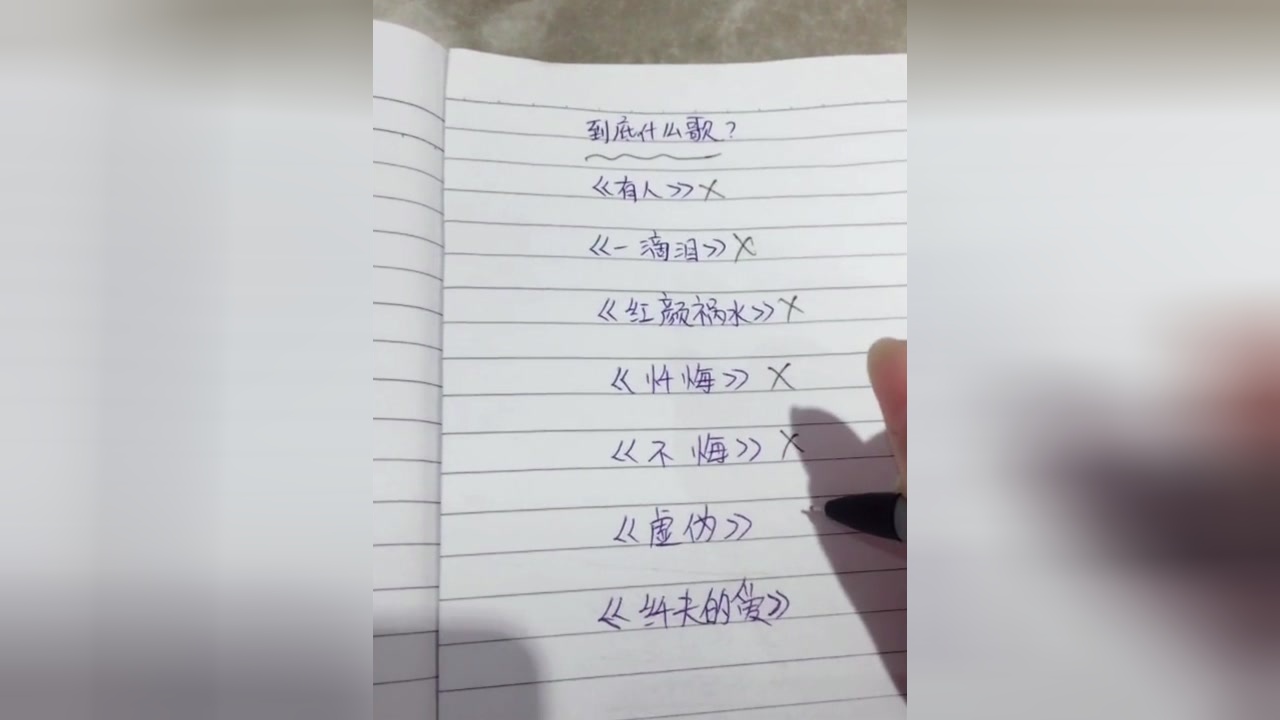 到底什么歌？
《有人》×
《一滴泪》×
《红颜祸水》×
《忏悔》×
《不悔》×
《虚伪》
《纤夫的爱》